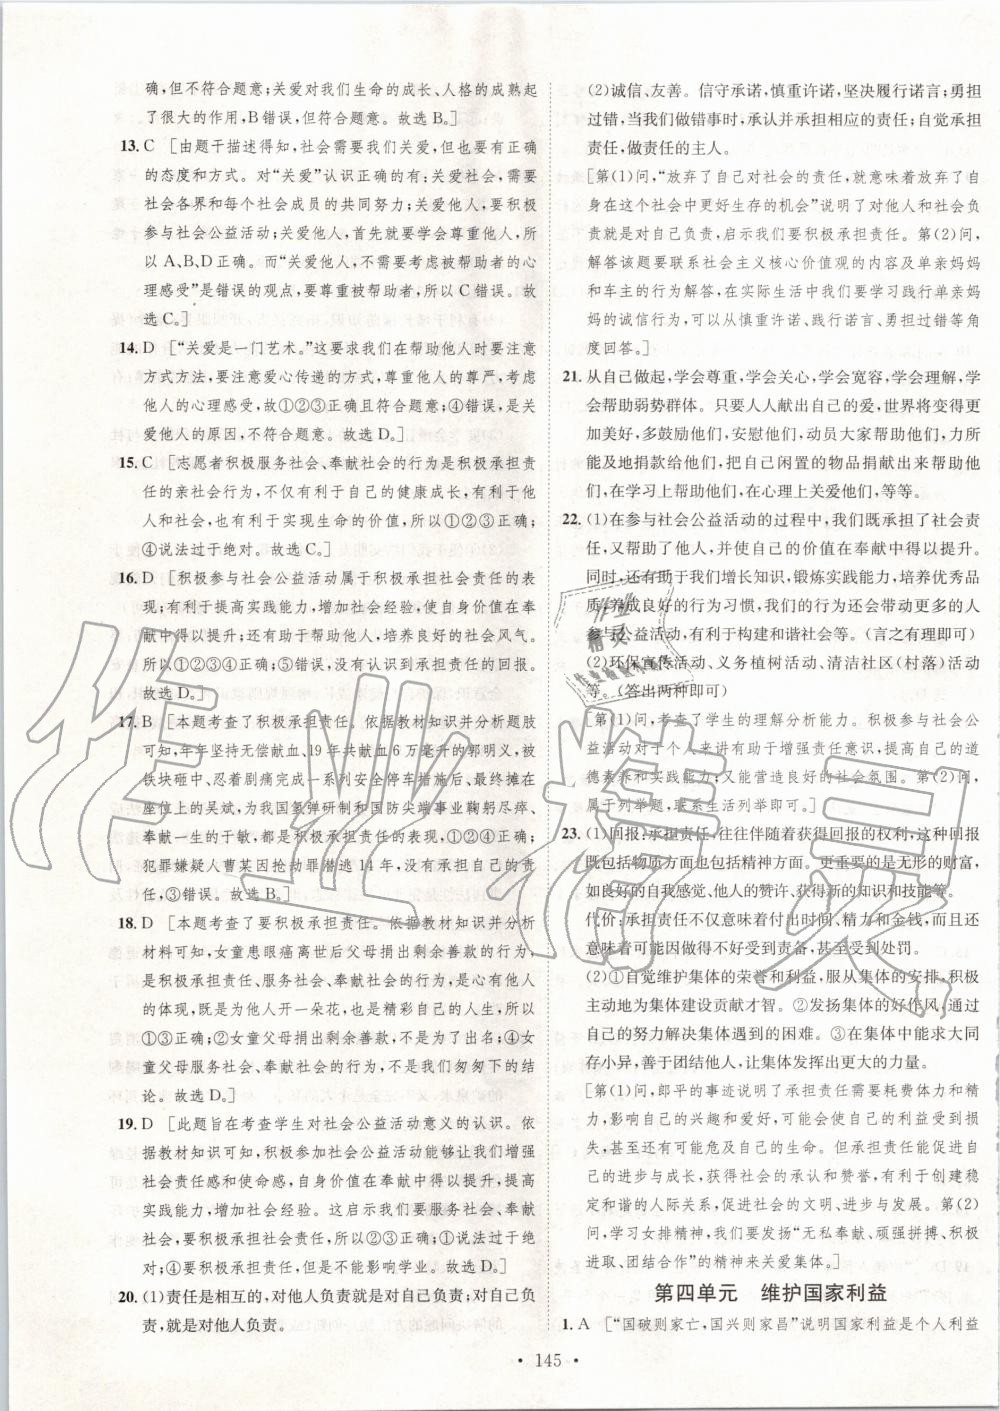 确,但不符合题意;关爱对我们生命的成长、人格的成熟起
了很大的作用,B错误,但符合题意。故选B。]
13. C [由题干描述得知,社会需要我们关爱,但也要有正确
的态度和方式。对“关爱”认识正确的有:关爱社会,需要
社会各界和每个社会成员的共同努力;关爱他人,要积极
参与社会公益活动;关爱他人,首先就要学会尊重他人,所
以A、B、D正确。而“关爱他人,不需要考虑被帮助者的心
理感受”是错误的观点,要尊重被帮助者,所以C错误。故
选C。]
14. D [“关爱是一门艺术。”这要求我们在帮助他人时要注意
方式方法,要注意爱心传递的方式,尊重他人的尊严,考虑
他人的心理感受,故①②③正确且符合题意;④错误,是关
爱他人的原因,不符合题意。故选D。]
15. C [志愿者积极服务社会、奉献社会的行为是积极承担责
任的亲社会行为,不仅有利于自己的健康成长,有利于他
人和社会,也有利于实现生命的价值,所以①②③正确;
④说法过于绝对。故选C。]
16. D [积极参与社会公益活动属于积极承担社会责任的表
现;有利于提高实践能力,增加社会经验,使自身价值在奉
献中得以提升;还有助于帮助他人,培养良好的社会风气。
所以①②③④正确;⑤错误,承担责任是不求回报的。
故选D。]
17. B [本题考查了积极承担责任。依据教材知识并分析题肢
可知,年年坚持无偿献血、19年共献血6万毫升的郭明义,被
铁块砸中、忍着剧痛完成一系列安全停车措施后,最终摊在
座位上的吴斌,为我国氢弹研制和国防尖端事业鞠躬尽瘁、
奉献一生的于敏,都是积极承担责任的表现,①②④正确;
犯罪嫌疑人曹某因抢动罪潜逃14年,没有承担社会责
任,③错误。故选B。]
18. D [本题考查了要积极承担责任。依据教材知识并分析
材料可知,女童患眼癌离世后父母捐出剩余善款的行为,
是积极承担责任、服务社会、奉献社会的行为,是关爱他人
的体现,既是为他人开一朵花,也是精彩自己的人生,所
以①③正确;②女童父母捐出剩余善款,不是为了出名;④女
童父母是服务社会、奉献社会,不是他们匆匆下的结
论。故选D。]
19. D [此题旨在考查学生对社会公益活动意义的认识。依
据教材知识可知,积极参加社会公益活动能够让我们增强
社会责任感和使命感,自身价值在奉献中得以提升,提高
实践能力,增加社会经验。这启示我们要服务社会、奉献
社会,积极参加社会公益活动,②③正确;①说法过于绝
对;④要承担后果,但是不能影响学业。故选D。]
20. (1)责任是相互的,对他人负责就是对自己负责;对自己负
责,就是对他人负责。
(2)诚信、友善。信守承诺,慎重许诺,坚决履行诺言;勇担
过错,当我们做错事时,承认并承担相应的责任;自觉承担
责任,做责任的主人。
[第(1)问,“放弃了自己对社会的责任,就意味着放弃了自
身在这个社会中更好生存的机会”说明了对他人和社会负
责就是对自己负责,启示我们要积极承担责任。第(2)问,
解答该题要联系社会主义核心价值观的内容及单亲妈妈
和车主的行为解答,在实际生活中我们要学习践行单亲妈
妈的诚信行为,可以从慎重许诺、践行诺言、勇担过错等角
度回答。]
21. 从自己做起,学会尊重,学会关心,学会宽容,学会理解,学
会帮助弱势群体。只要人人献出自己的爱,世界将变得更
加美好,多鼓励他们,安慰他们,动员大家帮助他们,力所
能及地捐款给他们,把自己闲置的物品捐献出来帮助他
们,在学习上帮助他们,在心理上关爱他们,等等。
22. (1)在参与社会公益活动的过程中,我们既承担了社会责
任,又帮助了他人,并使自己的价值在奉献中得以提升。
同时,还有助于我们增长知识,锻炼实践能力,培养优秀品
质,养成良好的行为习惯,我们的行为还会带动更多的人
参与公益活动,有利于构建和谐社会等。(言之有理即可)
(2)环保宣传活动、义务植树活动、清洁社区(村落)活动
等。(答出两种即可)
[第(1)问,考查了学生的理解分析能力。积极参与社会公
益活动对于个人来讲有助于增强责任意识,提高自己的道
德素养和实践能力;又能营造良好的社会氛围。第(2)问,
属于列举题,联系生活列举即可。]
23. (1)回报:承担责任,往往伴随着获得回报的权利,这种回报
既包括物质方面也包括精神方面。更重要的是无形的财富,
如良好的自我感觉,他人的赞许、获得新的知识和技能等。
代价:承担责任不仅意味着付出时间、精力和金钱,而且还
意味着可能因做得不好受到责备,甚至受到处罚。
(2)①自觉维护集体的荣誉和利益,服从集体的安排,积极
主动地为集体建设贡献才智。②发扬集体的好作风,通过
自己的努力解决集体遇到的困难。③在集体中能求大同
存小异,善于团结他人,让集体发挥出更大的力量。
[第(1)问,郎平的事迹说明了承担责任需要耗费体力和精
力,影响自己的兴趣和爱好,可能会使自己的利益受到损
失,甚至有可能危及自己的生命。但承担责任能促进自
己的进步与成长,获得社会的承认和赞誉,有利于创建稳
定和谐的人际关系,促进社会的文明、进步与发展。第(2)
问,学习女排精神,我们要发扬“无私奉献、顽强拼搏、积极
进取、团结合作”的精神来关爱集体。]
第四单元 维护国家利益
1. A [“国破则家亡,国兴则家昌”说明国家利益是个人利益
· 145 ·
作业精灵